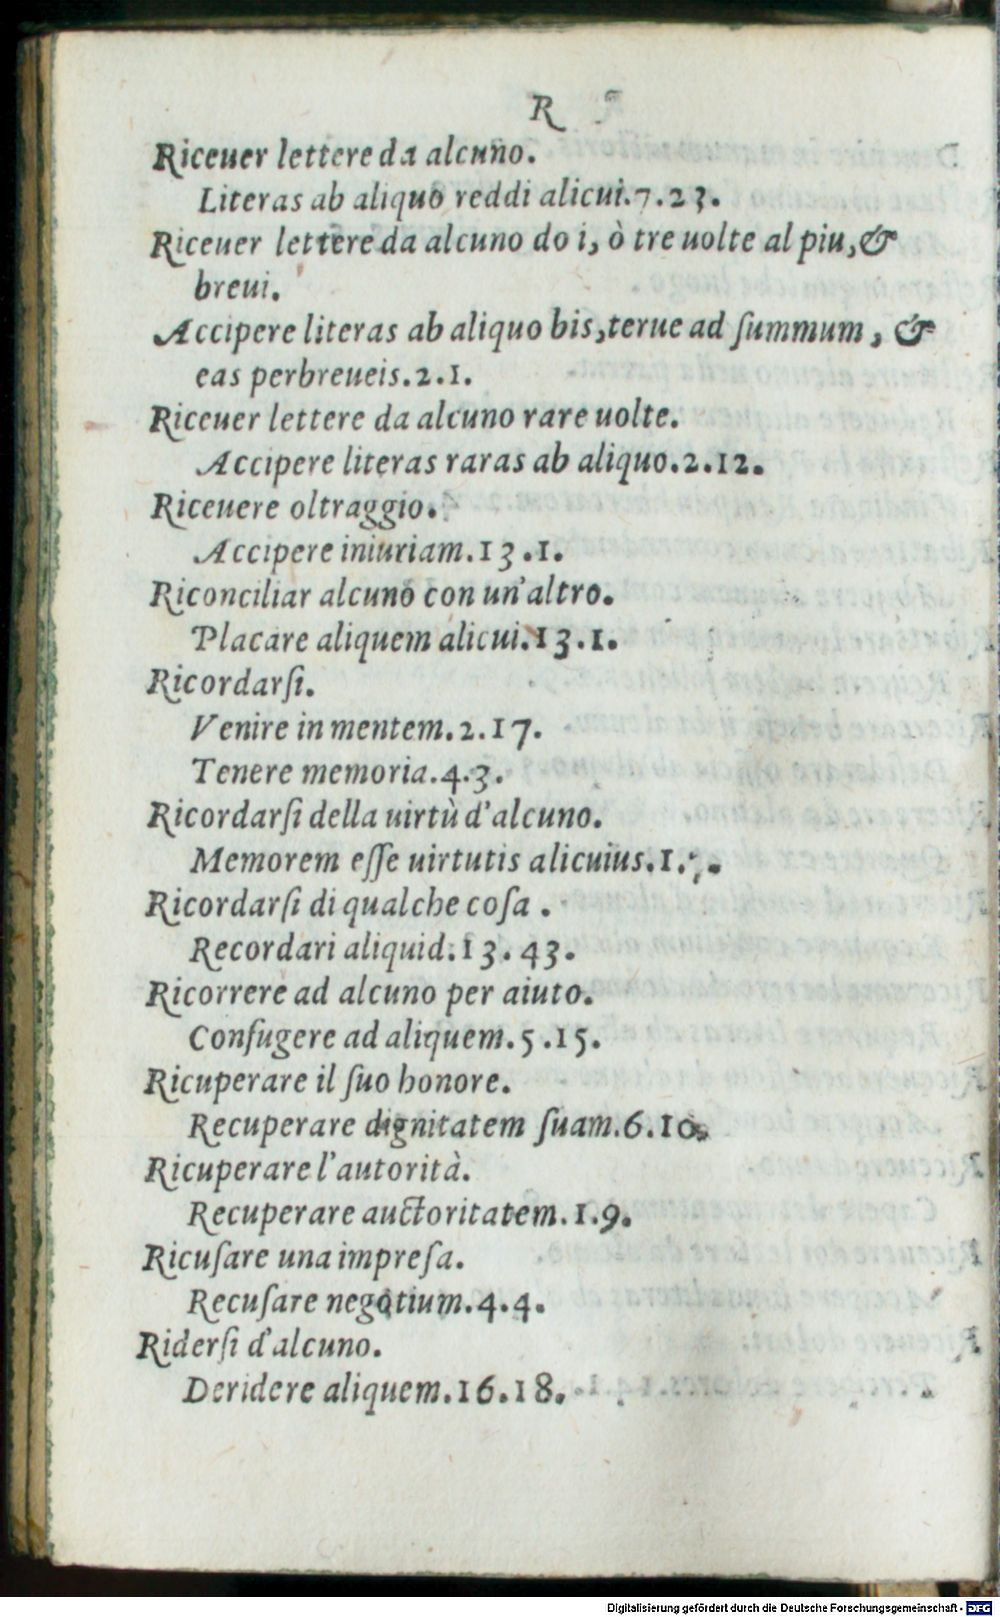 R
Riceuer lettere da alcuno.
Literas ab aliquo reddi alicui.7.23.
Riceuer lettere da alcuno do i, ò tre uolte al piu, &
breui.
Accipere literas ab aliquo bis, terue ad ſummum, &
eas perbreueis.2.1.
Riceuer lettere da alcuno rare uolte.
Accipere literas raras ab aliquo.2.12.
Riceuere oltraggio.
Accipere iniuriam.13.1.
Riconciliar alcuno con un'altro.
Placare aliquem alicui.13.1.
Ricordarſi.
Venire in mentem.2.17.
Tenere memoria.4.3.
Ricordarſi della uirtù d'alcuno.
Memorem eſſe uirtutis alicuius.1.
Ricordarſi di qualche coſa.
Recordari aliquid.13.43.
Ricorrere ad alcuno per aiuto.
Confugere ad aliquem.5.15.
Ricuperare il ſuo honore.
Recuperare dignitatem ſuam.6.10.
Ricuperare l'autorità.
Recuperare auctoritatem.1.9.
Ricuſare una impreſa.
Recuſare negotium.4.4.
Riderſi d'alcuno.
Deridere aliquem.16.18.
Digitalisierung gefördert durch die Deutsche Forschungsgemeinschaft - DFG